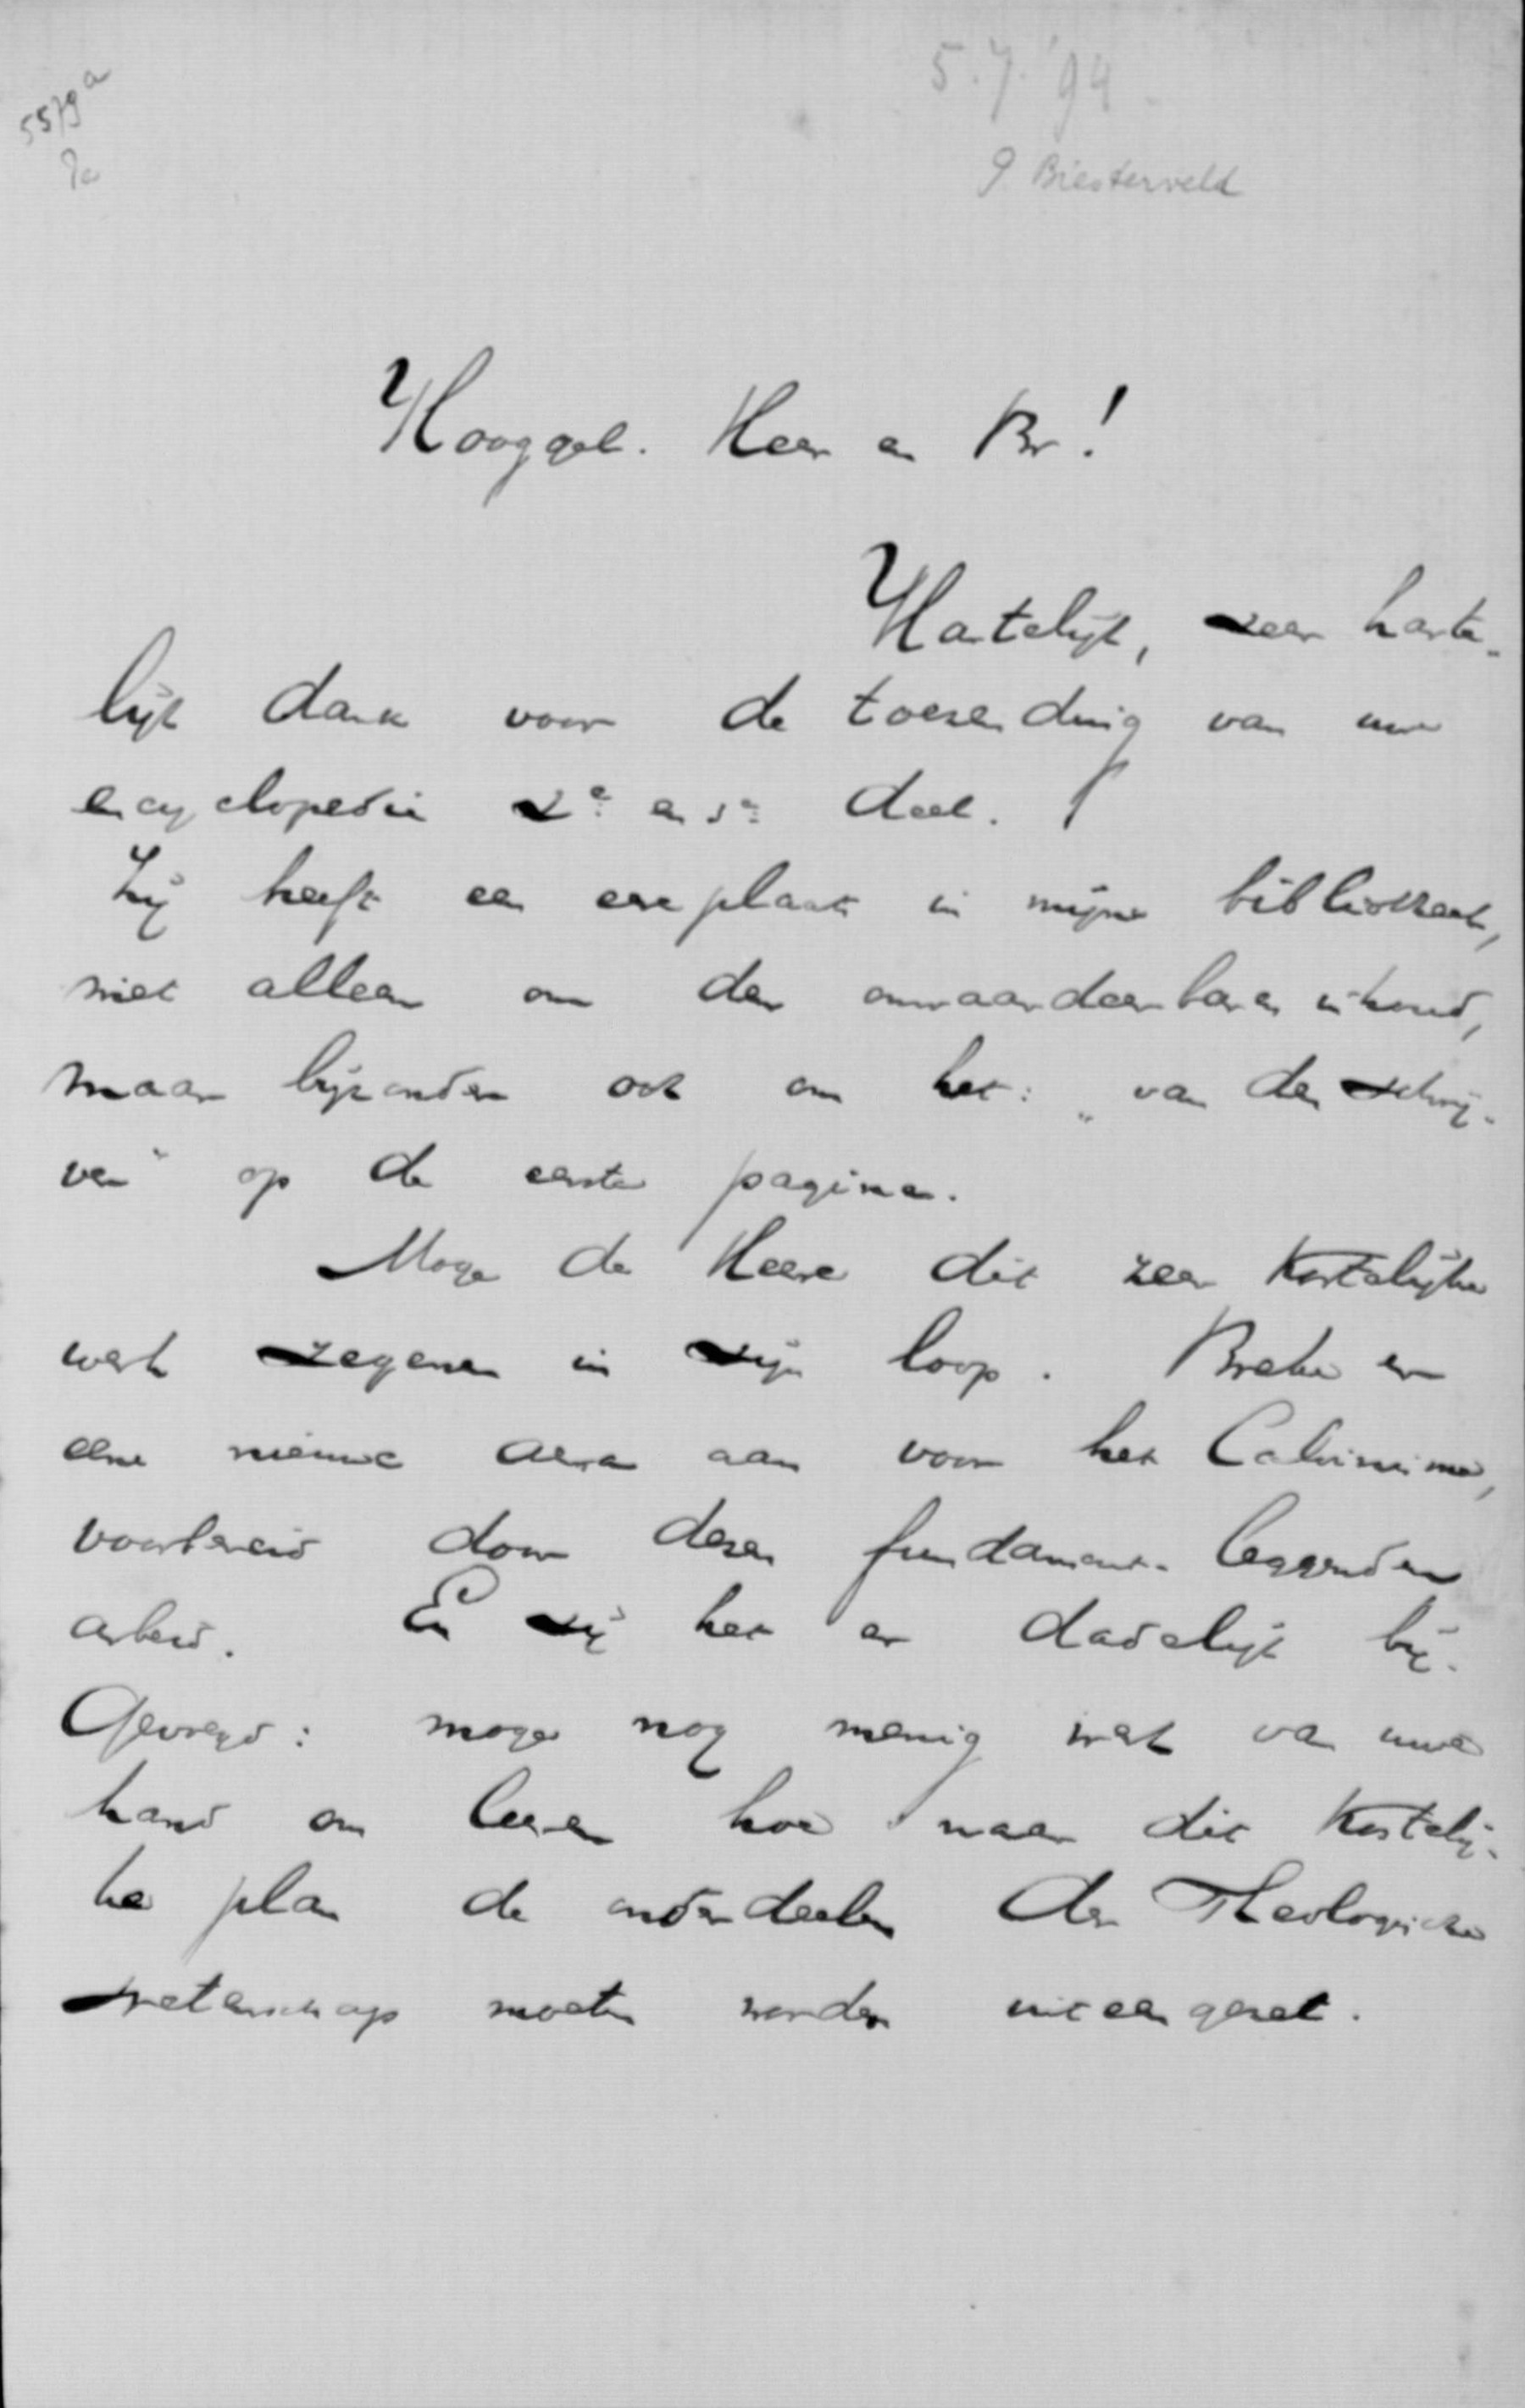 5579a
5.7.'94
P Biesterveld
Hooggel. Heer en Br!
Hartelijk, zeer harte-
lijk dank voor de toezending van uwe
encyclopedie 2e en 3e deel.
Zij heeft een eereplaats in mijne bibliotheek,
niet alleen om den onwaardeerbaren inhoud,
maar bijzonder ook om het: „van den schrij-
ver" op de eerste pagina.
Moge de Heere dit zeer kostelijke
werk zegenen in zijn loop. Breke er
eene nieuwe aera aan voor het Calvinisme,
voorbereid door dezen fundament-leggenden
arbeid. En zij het er dadelijk bij-
gevoegd: moge nog menig werk van uwe
hand ons leeren hoe naar dit kostelij-
ke plan de onderdeelen der Theologische
wetenschap moeten worden uiteengezet.